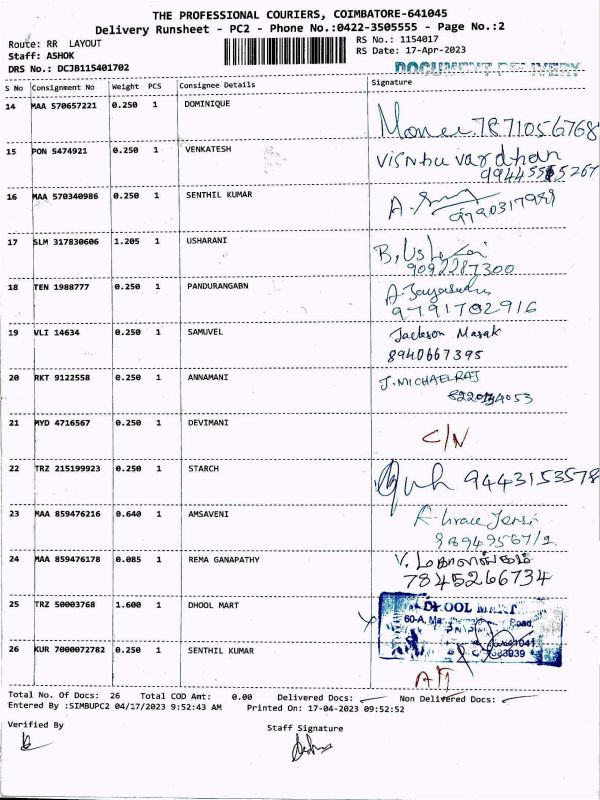 THE PROFESSIONAL COURIERS, COIMBATORE-641045
Delivery Runsheet - PC2 - Phone No.:0422-3505555 - Page No.:2
Route: RR LAYOUT
RS No.: 1154017
Staff: ASHOK
RS Date: 17-Apr-2023
DRS No.: DCJB115401702
DOCUMENT DELIVERY
S No Consignment No Weight PCS Consignee Details Signature
14 MAA 570657221 0.250 1 DOMINIQUE
7871056768
15 PON 5474921 0.250 1 VENKATESH
Vishnu vardhan
16 MAA 570340986 0.250 1 SENTHIL KUMAR
17 SLM 317830606 1.205 1 USHARANI
9092287300
18 TEN 1988777 0.250 1 PANDURANGABN
9791702916
19 VLI 14634 0.250 1 SAMUVEL
Jackson Masak
8940667395
20 RKT 9122558 0.250 1 ANNAMANI
J. MICHAELRAJ
21 MYD 4716567 0.250 1 DEVIMANI
C/N
22 TRZ 215199923 0.250 1 STARCH
9443153578
23 MAA 859476216 0.640 1 AMSAVENI
24 MAA 859476178 0.085 1 REMA GANAPATHY
V. மகாலிங்கம்
7845266734
25 TRZ 50003768 1.600 1 DHOOL MART
DHOOL MART
60-A, Road,
26 KUR 7000072782 0.250 1 SENTHIL KUMAR
Total No. Of Docs: 26 Total COD Amt: 0.00 Delivered Docs: Non Delivered Docs:
Entered By :SIMBUPC2 04/17/2023 9:52:43 AM Printed On: 17-04-2023 09:52:52
Verified By
Staff Signature